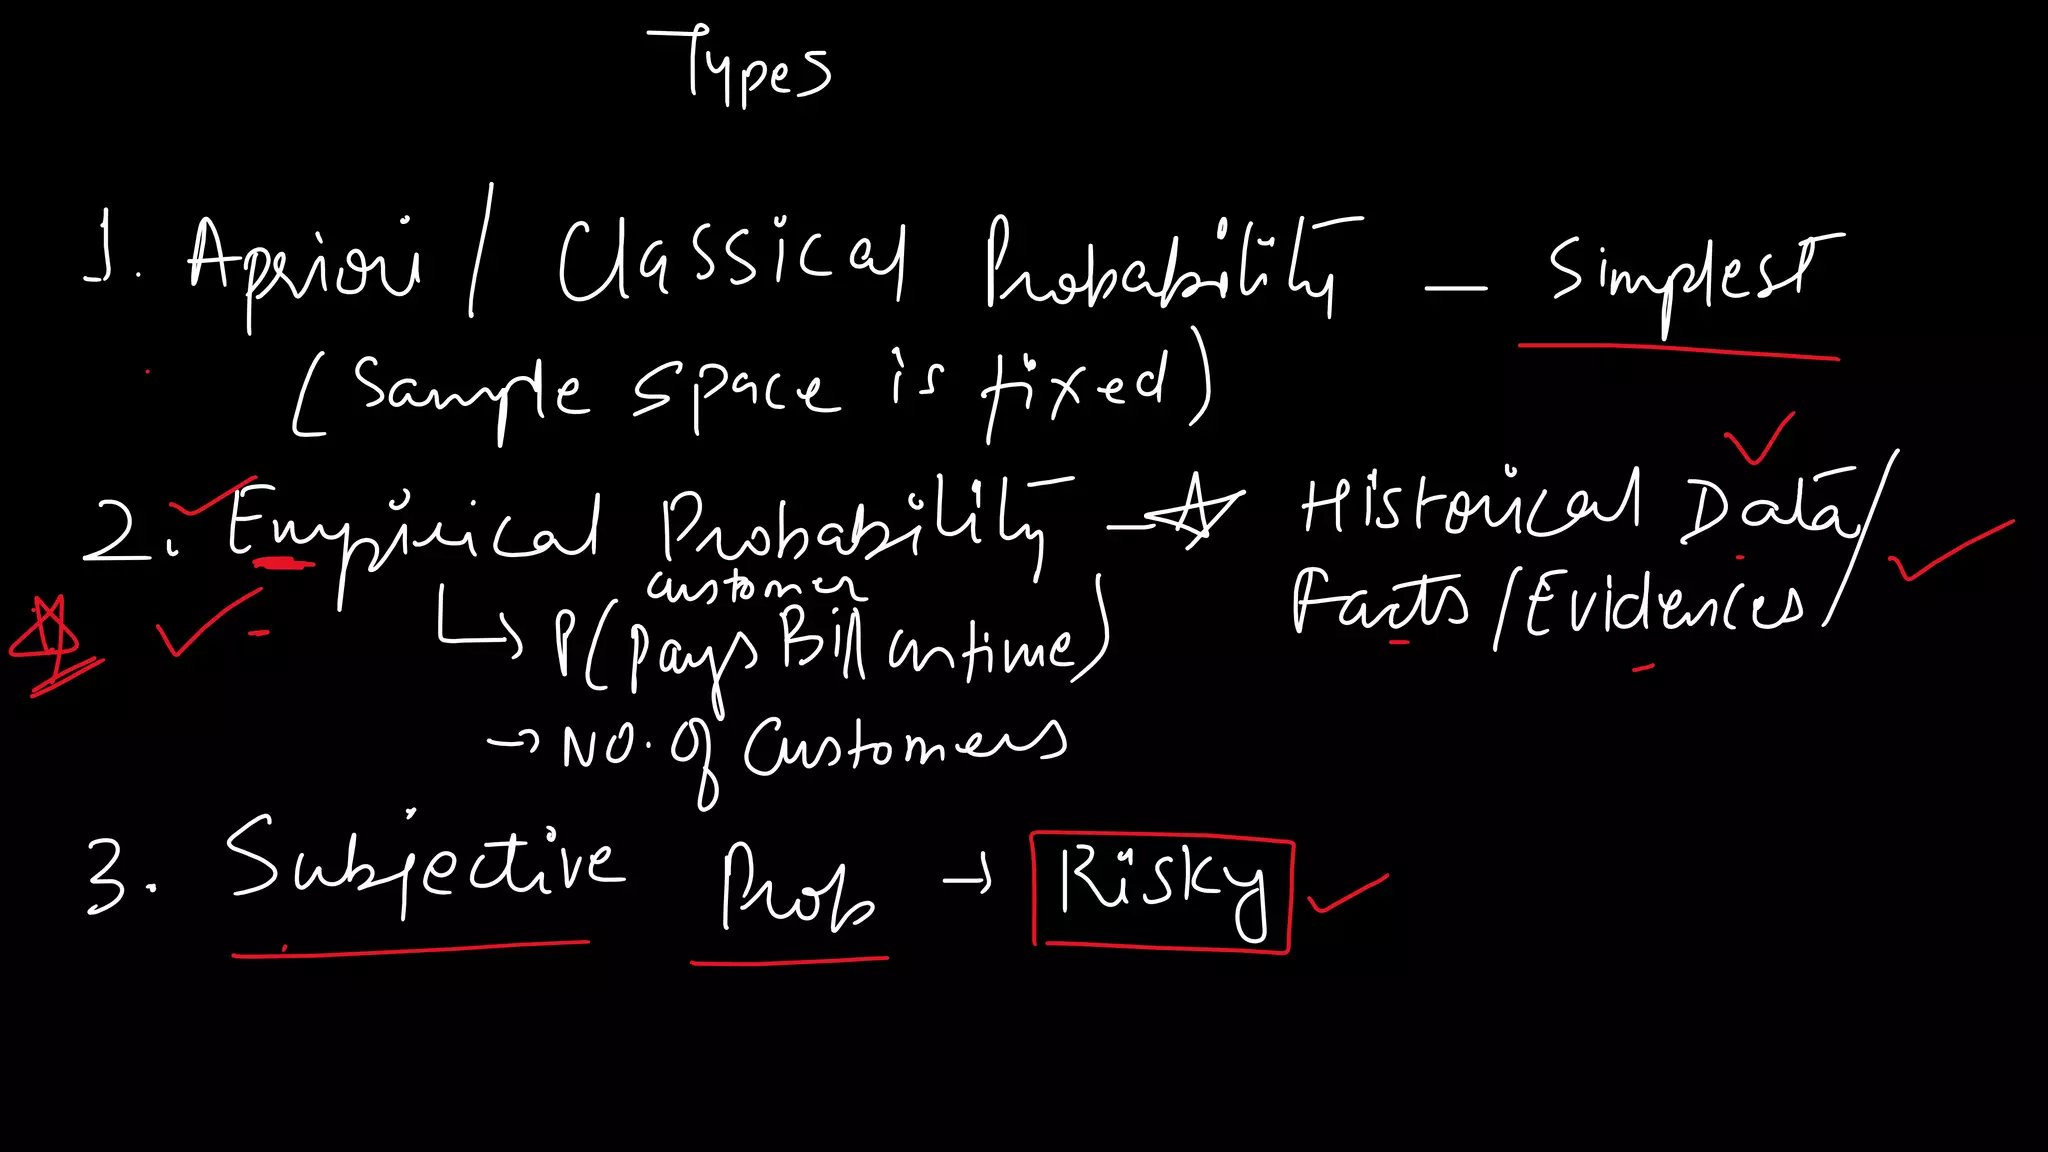 Types
1. Apriori / Classical Probability - Simplest
(Sample space is fixed)
2. Empirical Probability - ☆ Historical Data /
Facts / Evidences /
customer
↳ P(pays Bill on time)
→ No. of Customers
3. Subjective Prob → Risky